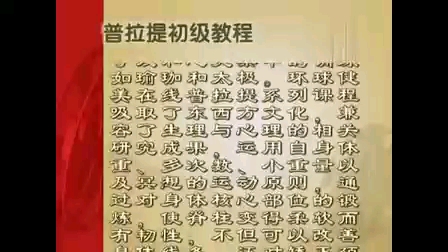 普拉提初级教程
如瑜珈和太极。环球健
美在线普拉提系列课程
吸取了东西方文化，兼
容了生理与心理的相关
研究成果，运用自身体
重、多次数、小重量以
及冥想的运动原则，通
过对身体核心部位的锻
炼，使脊柱变得柔软而
有韧性，不但可以改善